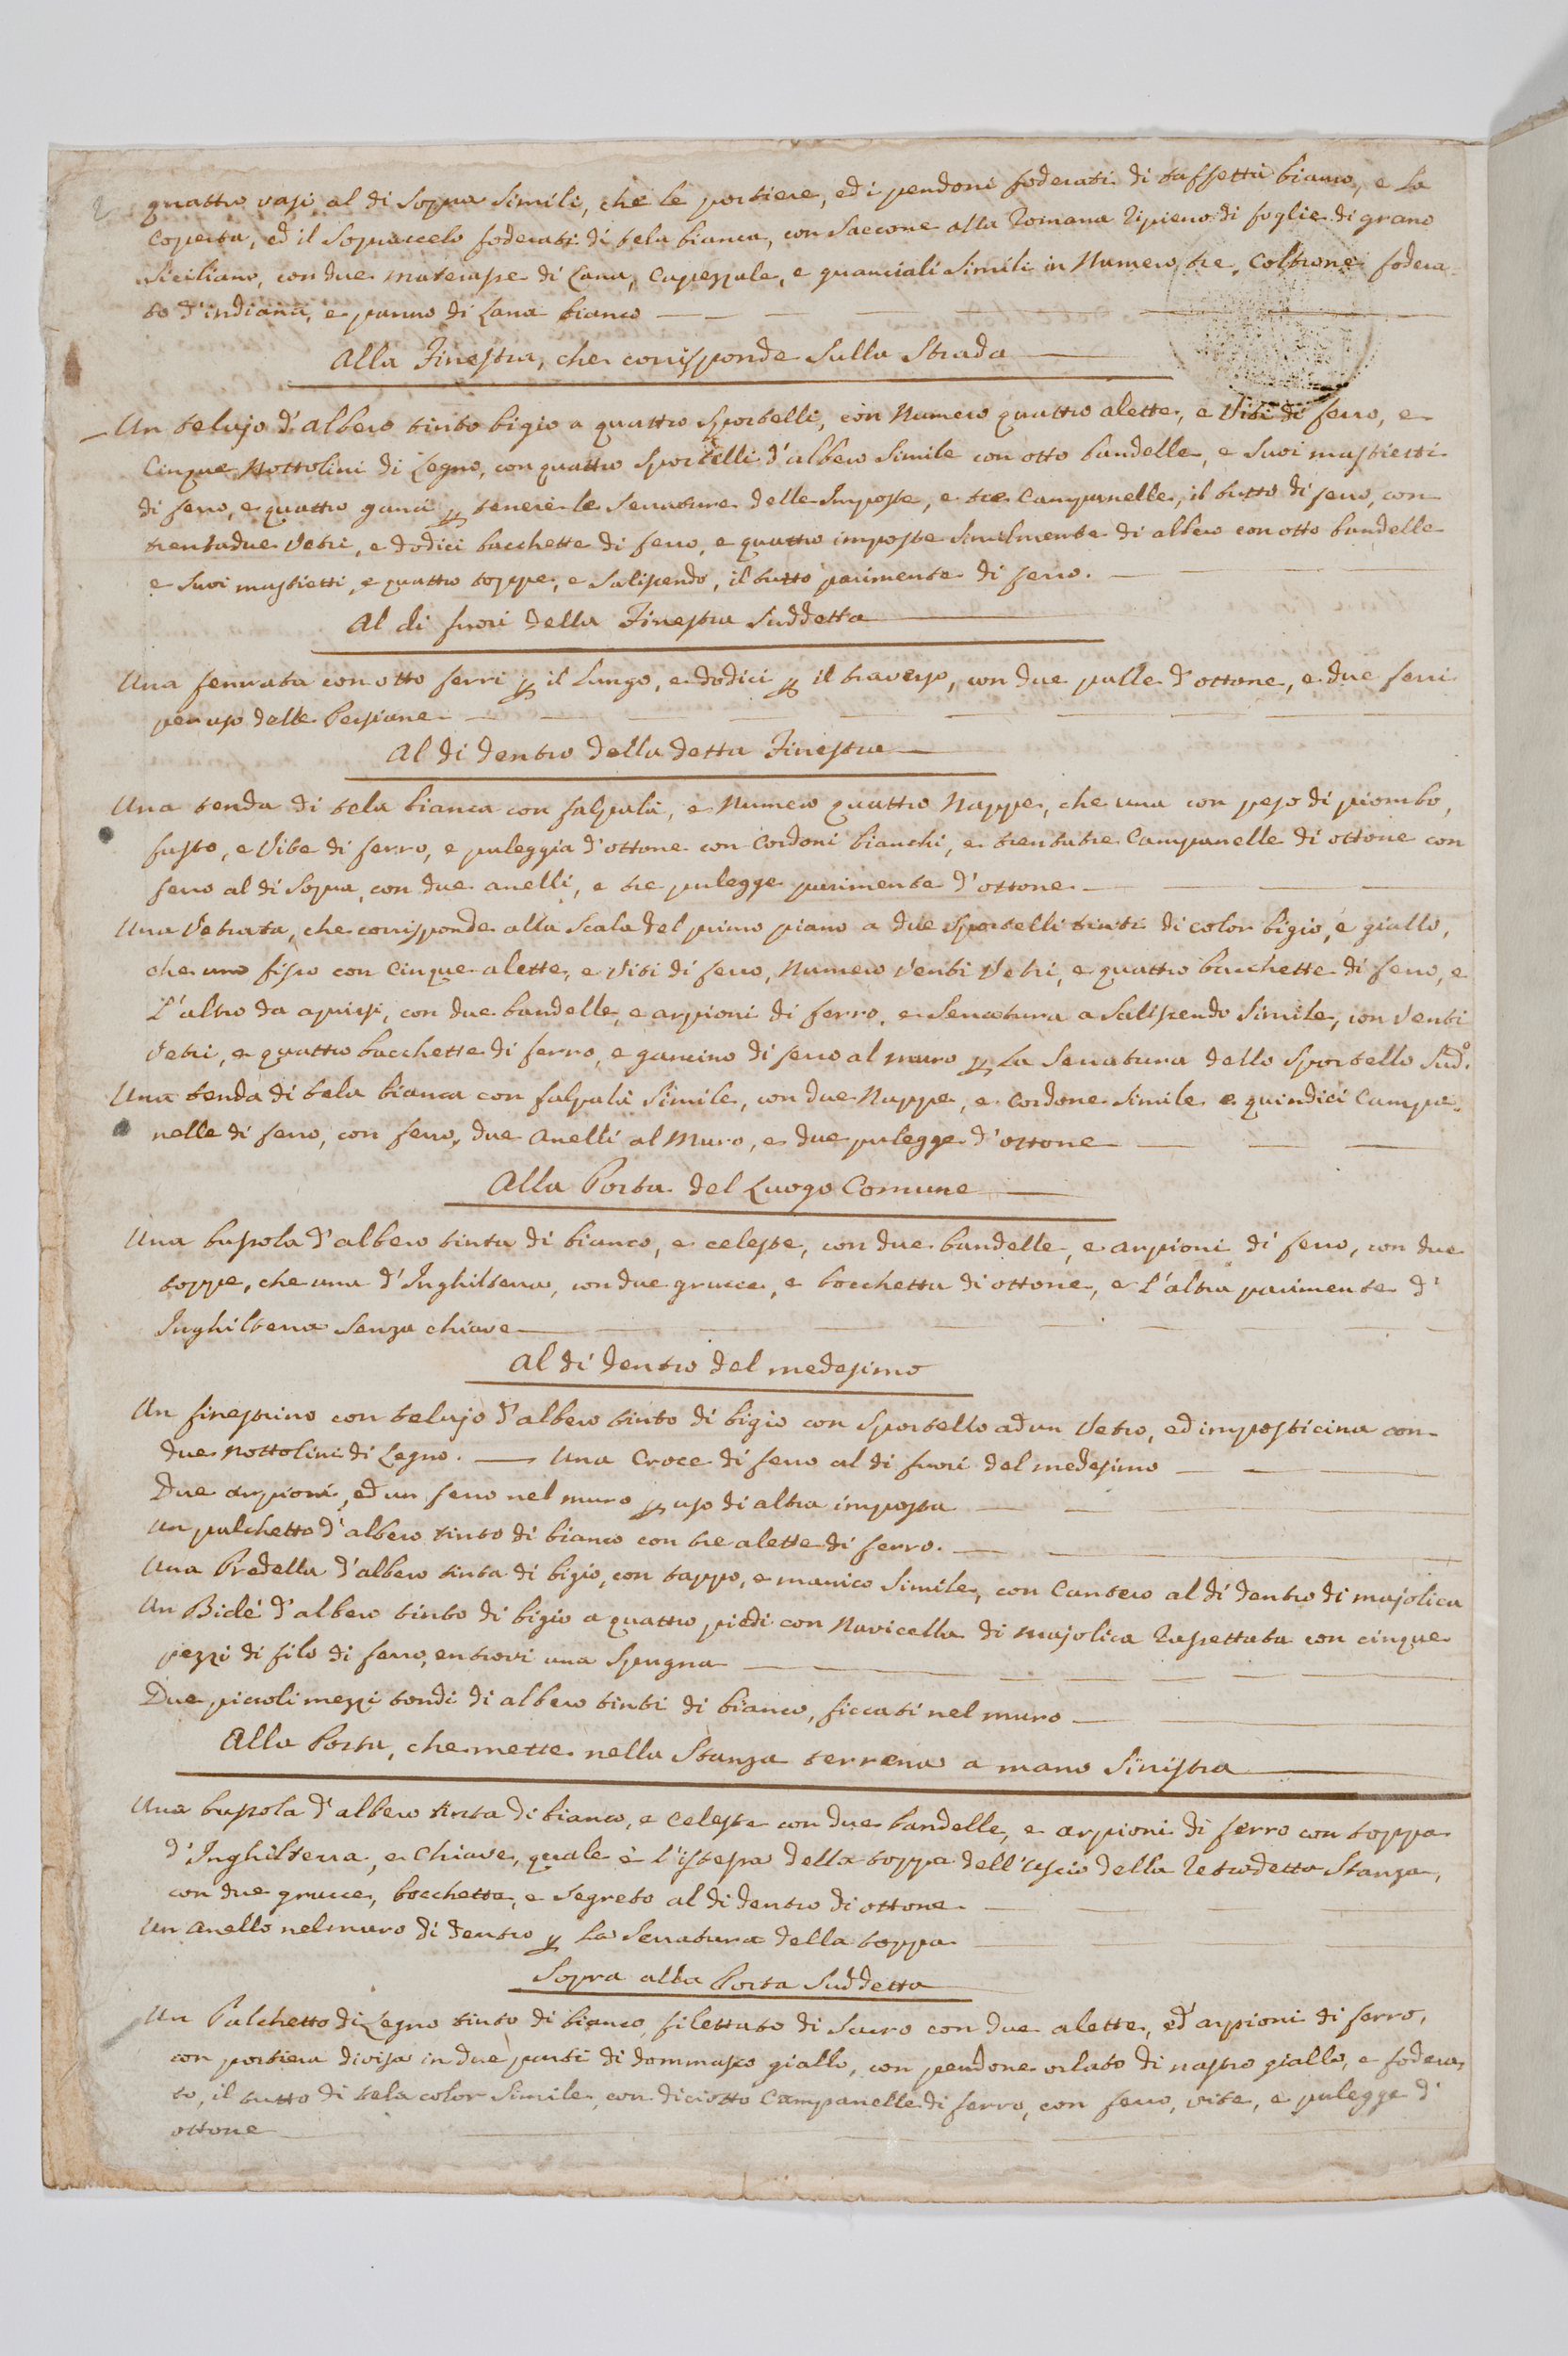 quattro vasi al di Sopra Simili, che le portiere, ed i pendoni foderati di taffettà bianco, e La
Coperta, ed il Sopraccelo foderati di tela bianca, con Saccone alla Romana Ripieno di foglie di grano
Siciliano, con due materasse di Lana, Capezzale, e guanciali Simili in Numero tre, Coltrone fodera-
to d'indiana, e panno di Lana bianco
Alla Finestra, che corrisponde Sulla Strada
Un telajo d'albero tinto bigio a quattro Sportelli, con Numero quattro alette, e Viti di ferro, e
Cinque Nottolini di Legno, con quattro Sportelli d'albero Simile con otto bandelle, e Suoi mastietti
di ferro, e quattro ganci p tenere le Serrature delle Imposte, e tre Campanelle, il tutto di ferro, con
trentadue Vetri, e dodici bacchette di ferro, e quattro imposte Similmente di albero con otto bandelle
e Suoi mastietti, e quattro toppe, e Saliscendo, il tutto parimente di ferro.
Al di fuori della Finestra Suddetta
Una ferrata con otto ferri p il Lungo, e dodici p il traverso, con due palle d'ottone, e due ferri
per uso delle Persiane
Al di dentro della detta Finestra
Una tenda di tela bianca con falpalà, e Numero quattro Nappe, che una con peso di piombo,
fusto, e Vite di ferro, e puleggia d'ottone con Cordoni bianchi, e trentatre Campanelle di ottone con
ferro al di Sopra, con due anelli, e tre pulegge parimente d'ottone
Una Vetrata, che corrisponde alla Scala del primo piano a due Sportelli tinti di color bigio, e giallo,
che uno fisso con Cinque alette, e Viti di ferro, Numero Venti Vetri, e quattro bacchette di ferro, e
L'altro da aprirsi, con due bandelle, e arpioni di ferro, e Serratura a Saliscendo Simile, con Venti
Vetri, e quattro bacchette di ferro, e gancino di ferro al muro p La Serratura dello Sportello Sud.º
Una tenda di tela bianca con falpalà Simile, con due Nappe, e Cordone Simile e quindici Campa-
nelle di ferro, con ferro, due Anelli al Muro, e due pulegge d'ottone
Alla Porta del Luogo Comune
Una bussola d'albero tinta di bianco, e celeste, con due bandelle, e arpioni di ferro, con due
toppe, che una d'Inghilterra, con due grucce, e bocchetta di ottone, e L'altra parimente d'
Inghilterra Senza chiave
Al di dentro del medesimo
Un finestrino con telajo d'albero tinto di bigio con Sportello ad un Vetro, ed imposticina con
due Nottolini di Legno. Una Croce di ferro al di fuori del medesimo
Due arpioni, ed un ferro nel muro p uso di altra imposta
Un palchetto d'albero tinto di bianco con tre alette di ferro.
Una Predella d'albero tinta di bigio, con tappo, e manico Simile, con Cantero al di dentro di majolica
Un Bidé d'albero tinto di bigio a quattro piedi con Navicella di Majolica Rassettata con cinque
pezzi di filo di ferro, entrovi una Spugna
Due piccoli mezzi tondi di albero tinti di bianco, ficcati nel muro
Alla Porta, che mette nella Stanza terrena a mano Sinistra
Una bussola d'albero tinta di bianco, e Celeste con due bandelle, e arpioni di ferro con toppa
d'Inghilterra, e Chiave, quale è l'istessa della toppa dell'uscio della Retrodetta Stanza,
con due grucce, bocchetta, e Segreto al di dentro di ottone
Un Anello nel muro di dentro p La Serratura della toppa
Sopra alla Porta Suddetta
Un Palchetto di Legno tinto di bianco, filettato di Scuro con due alette, ed arpioni di ferro,
con portiera divisa in due parti di dommasco giallo, con pendone orlato di nastro giallo, e fodera-
to, il tutto di tela color Simile, con diciotto Campanelle di ferro, con ferro, vite, e pulegge d'
ottone